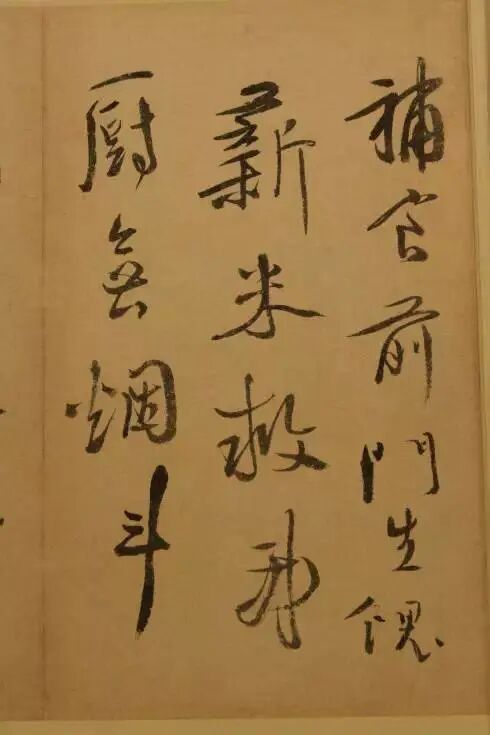 補食前門生餽
薪米救我
廚無烟斗